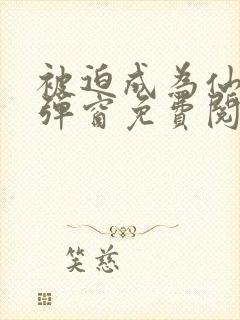 被迫成为仙
弹窗免費閱
笑慈